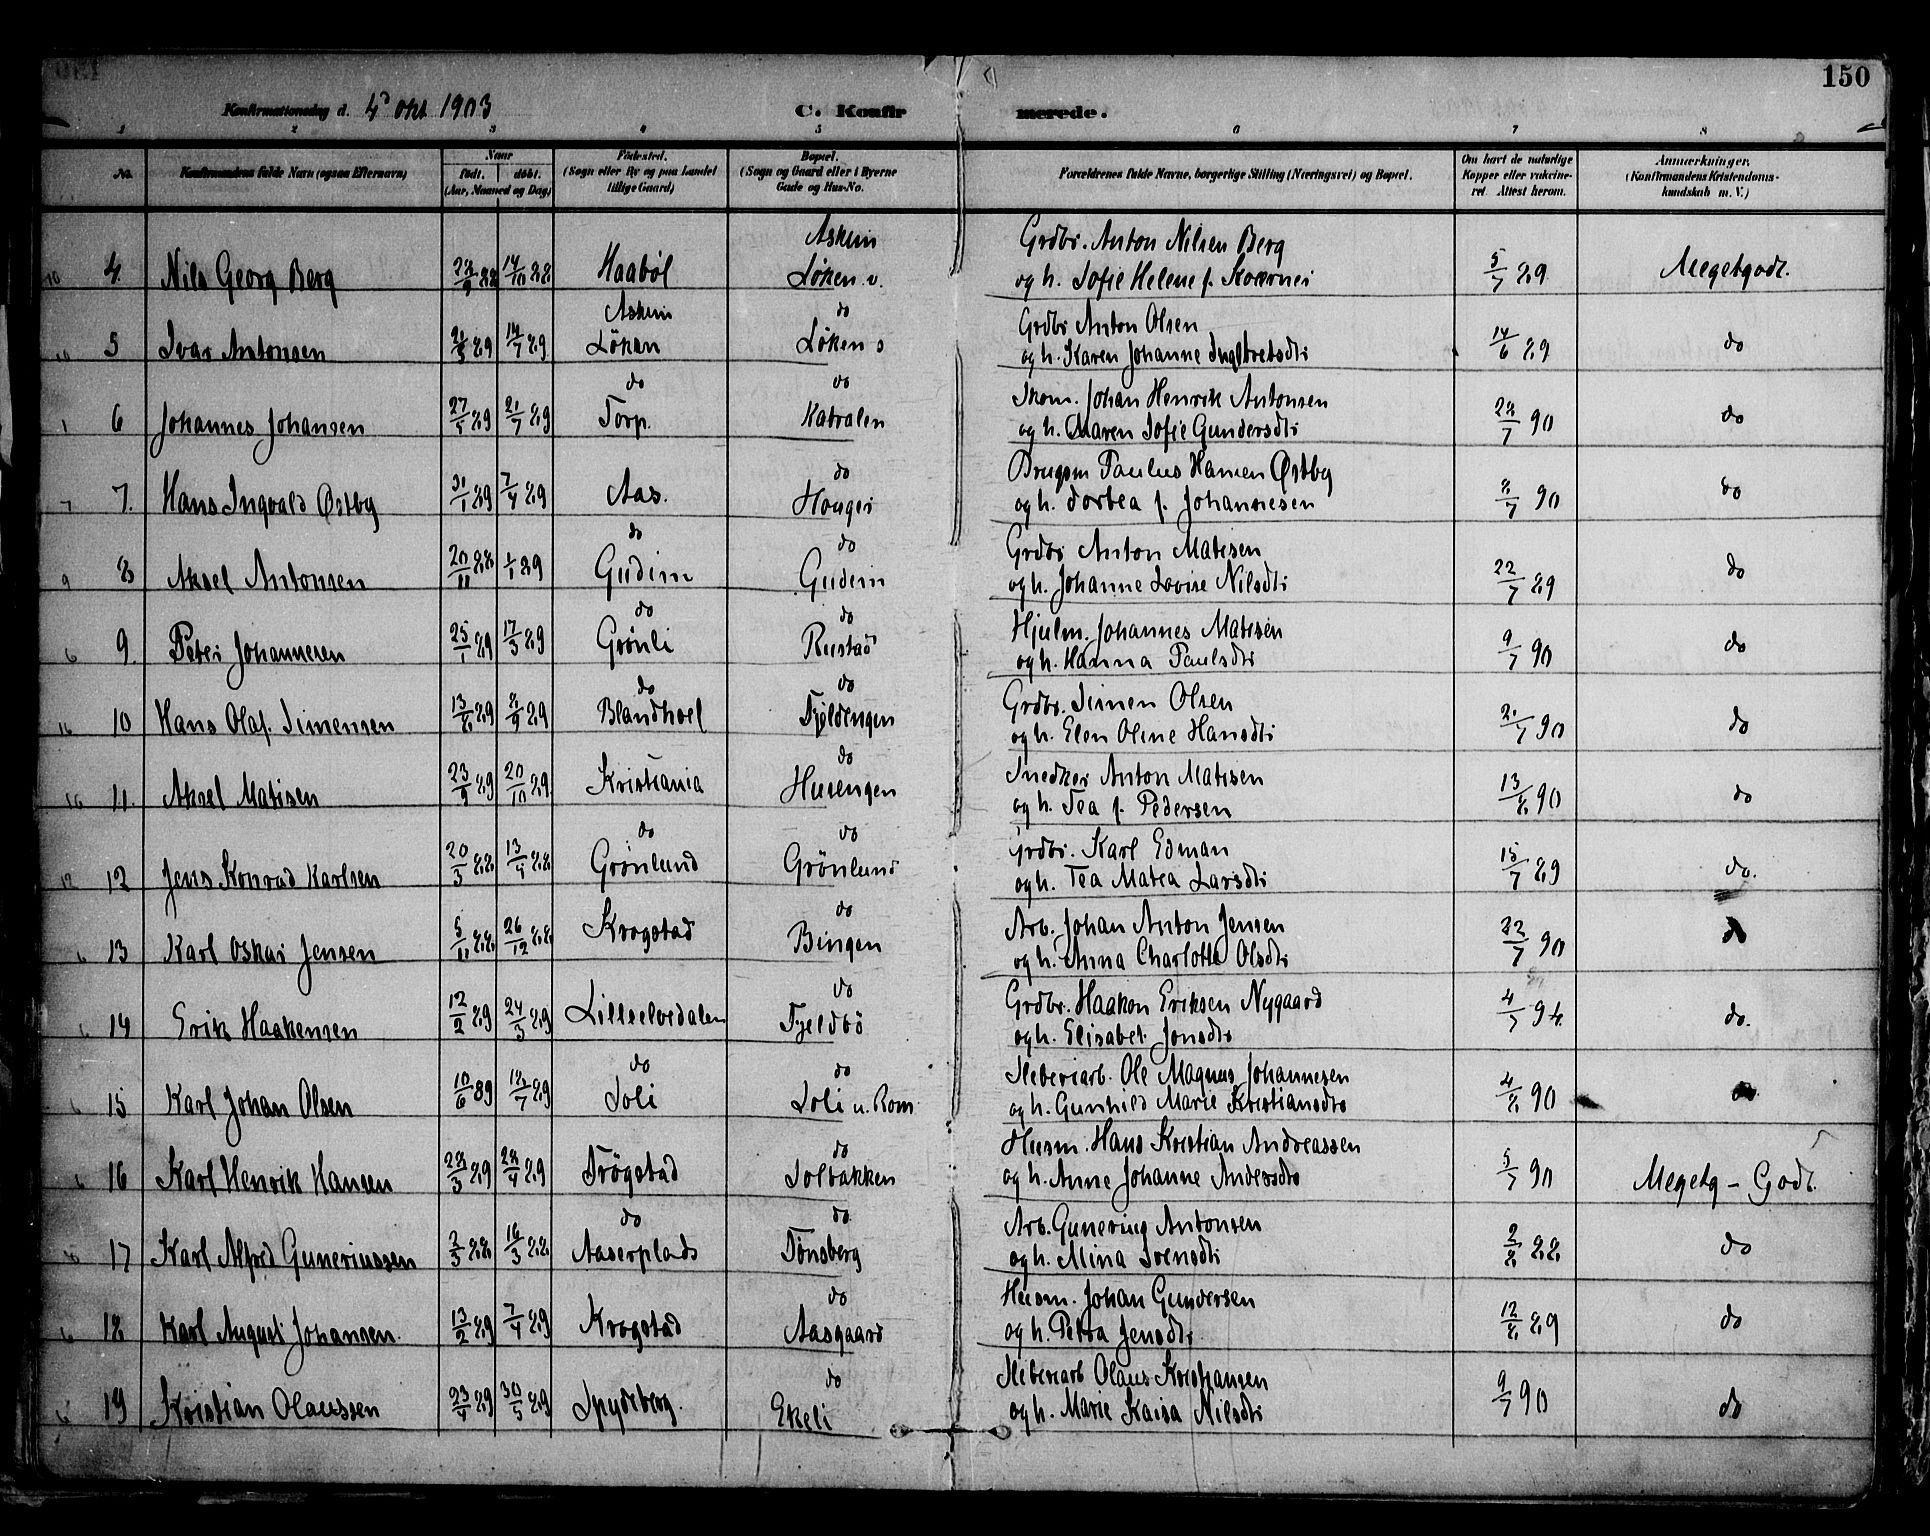 150
Konfirmationsdag d. 4de okt 1903 C. Konfirmerede.
1 2 3 4 5 6 7 8
No. Konfirmandens fulde Navn (ogsaa Efternavn) Naar født. døbt. (Aar, Maaned og Dag) Fødested. (Sogn eller By og paa Landet tillige Gaard) Bopæl. (Sogn og Gaard eller i Byerne Gade og Hus-No. Forældrenes fulde Navne, borgerlige Stilling (Næringsvei) og Bopæl. Om havt de naturlige Kopper eller vakcineret. Attest herom. Anmærkninger. (Konfirmandens Kristendomskundskab m. V.)
Askim Grdbr. Anton Nilsen Berg
4. Nils Georg Berg 14/10 88 Haabøl Løken v. og h. Sofie Helene f. Kværner 5/7 89 Megetgodt.
Askim do Grdbr Anton Olsen
5 Ivar Antonsen 14/7 89 Løken Løken s og h. Karen Johanne Ingebretsdtr 14/6 89 do
do do Skom. Johan Henrik Antonsen
6 Johannes Johansen 27/5 89 21/7 89 Torp. Katralen og h. Maren Sofie Gundersdtr 28/7 90 do
do Brugsm Paulus Hansen Østby
7. Hans Ingvald Østby 31/1 89 7/4 89 Aas. Hauger og h. Dortea f. Johannesen 8/7 90 do
do do Grdbr Anton Matisen
8 Aksel Antonsen 20/11 88 1/1 89 Gudim Gudim og h. Johanne Lovise Nilsdtr 22/7 89 do
do do Hjulm. Johannes Matisen
9. Peter Johannesen 25/1 89 17/3 89 Grønli Rustad og h. Hanna Paulsdtr 9/7 90 do
do do Grdbr. Simen Olsen
10 Hans Olaf. Simensen 13/8 89 8/9 89 Blandhoel Fjeldengen og h. Elen Oline Hansdtr 2/7 90 do
do Snedker Anton Matisen
11. Aksel Matisen 23/9 89 20/10 89 Kristiania Husengen og h. Tea f. Pedersen 13/8 90 do
do do Grdbr. Karl Edman
12 Jens Konrad Karlsen 20/3 88 13/4 88 Grønlund Grønlund og h. Tea Matea Larsdtr 15/7 89 do.
do Arb. Johan Anton Jensen
13 Karl Oskar Jensen 5/11 88 26/12 88 Krogstad Bingen og h. Anna Charlotte Olsdtr 22/7 90 do
do Grdbr. Haakon Eriksen Nygaard
14 Erik Haakensen 12/2 89 24/3 89 Lilleelvedalen Fjeldbö og h. Elisabet Jonsdtr 4/7 94. do.
do do Sliberiarb. Ole Magnus Johannesen
15 Karl Johan Olsen 10/6 89 18/7 89 Soli Soli u. Rom og h. Gunhild Marie Kristiansdtr 4/8 90 do
do Husm. Hans Kristian Andreassen
16 Karl Henrik Hansen 28/3 89 28/4 89 Trögstad Solbakken og h. Anne Johanne Andersdtr 5/7 90 Megetg - Godt.
do do Arb. Gunerius Antonsen
17 Karl Alfred Guneriussen 2/3 88 18/3 88 Aaserplads Tonsberg og h. Mina Svensdtr 2/8 88 do
do Husm. Johan Gundersen
18 Karl August Johansen. 13/2 89 7/4 89 Krogstad Aasgaard og h. Petra Jensdtr 12/8 89 do
do Sliberiarb Olaus Kristiansen
19 Kristian Olaussen 23/4 89 30/5 89 Spydeberg. Ekeli og h. Marie Kaisa Nilsdtr 9/7 90 do